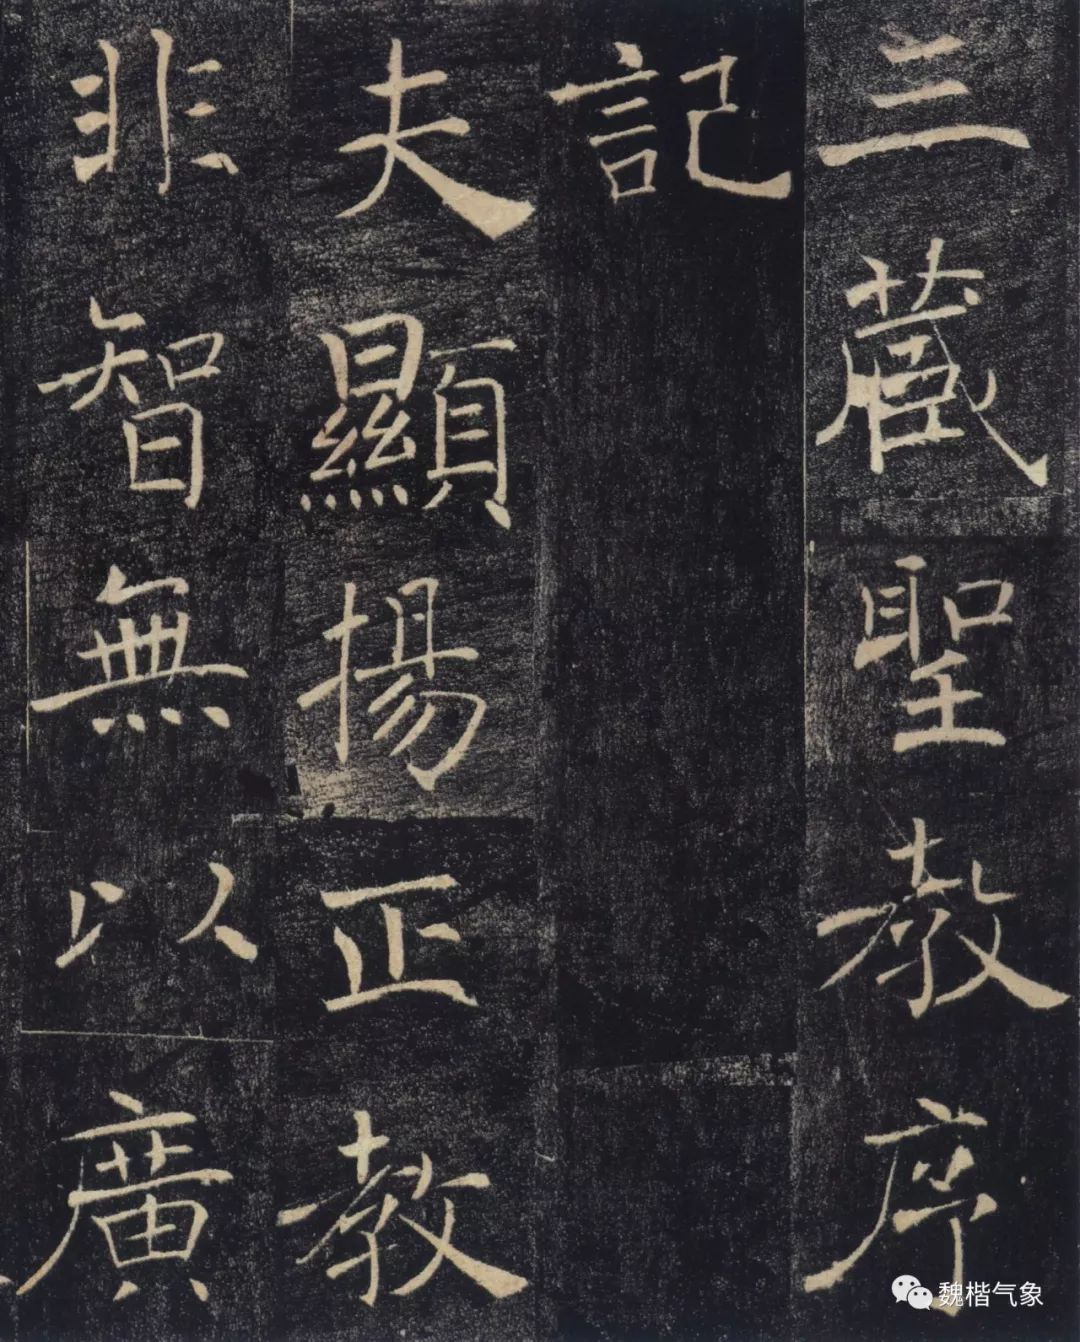 三藏聖教序
記
夫顯揚正教
非智無以廣
魏楷气象